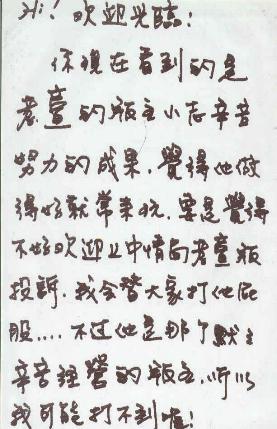 Hi! 欢迎光臨!
你現在看到的是
老臺的版主小志辛苦
努力的成果,覺得他做
得好就常来玩,要是覺得
不好欢迎上中情向老臺版
投訴.我会替大家打他屁
股....不过他是那个默默
辛苦經營的版主,所以
我可能打不到喔!